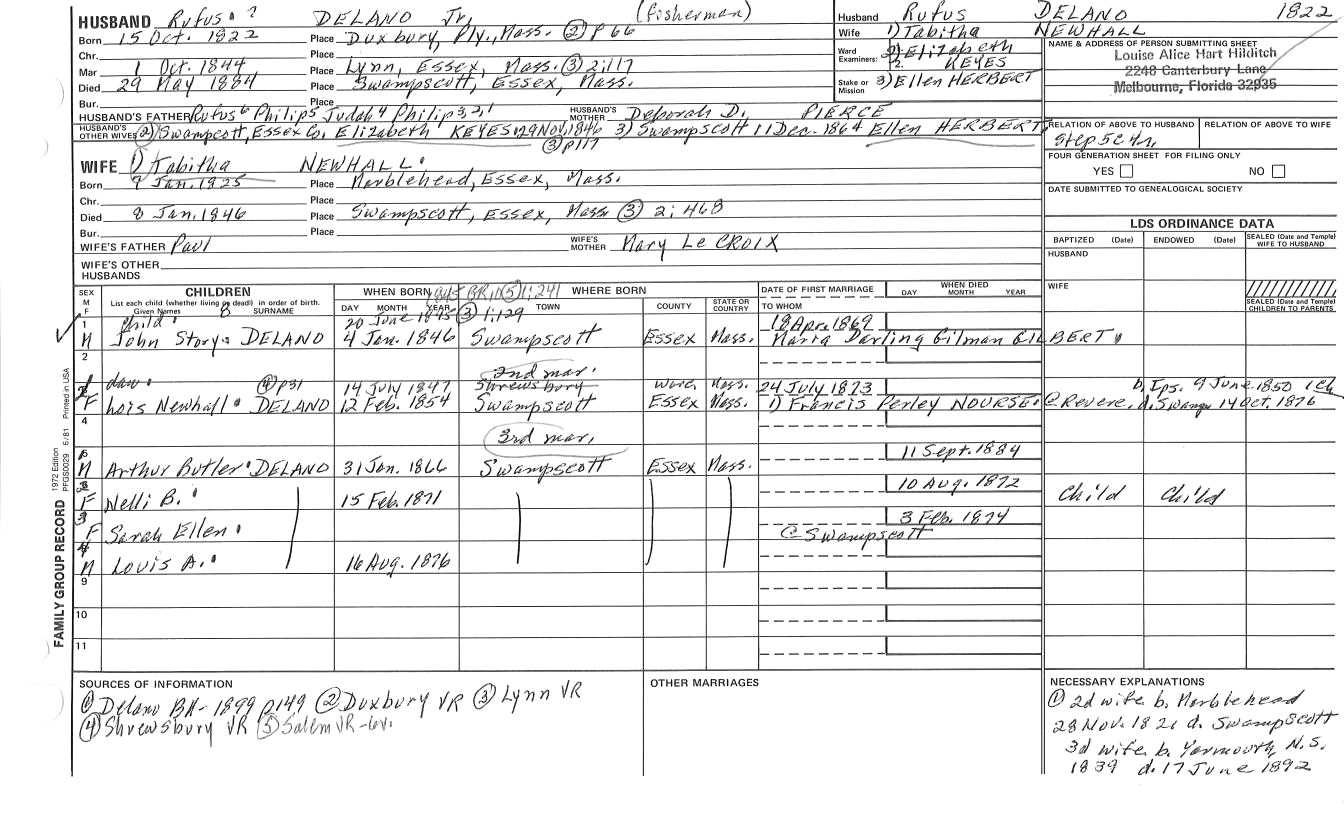 HUSBAND Rufus 7 DELANO Jr. (fisherman)
Born 15 Oct. 1822 Place Duxbury, Ply., Mass. (2) p 66
Chr. Place
Mar 1 Oct. 1844 Place Lynn, Essex, Mass. (3) 2;117
Died 29 May 1884 Place Swampscott, Essex, Mass.
Bur. Place
HUSBAND'S FATHER Rufus 6 Philip 5 Judah 4 Philip 3,2,1 HUSBAND'S MOTHER Deborah D. PIERCE
HUSBAND'S OTHER WIVES (2) Swampscott, Essex Co, Elizabeth KEYES 29 Nov. 1846 3) Swampscott 11 Dec. 1864 Ellen HERBERT
(3) p117
WIFE 1) Tabitha NEWHALL
Born 7 Jan. 1825 Place Marblehead, Essex, Mass.
Chr. Place
Died 8 Jan. 1846 Place Swampscott, Essex, Mass (3) 2; 468
Bur. Place
WIFE'S FATHER Paul WIFE'S MOTHER Mary Le CROIX
WIFE'S OTHER HUSBANDS
Husband Rufus DELANO 1822
Wife 1) Tabitha NEWHALL
Ward Examiners: 1. 2. 2) Elizabeth KEYES
Stake or Mission 3) Ellen HERBERT
NAME & ADDRESS OF PERSON SUBMITTING SHEET
Louise Alice Hart Hilditch
2248 Canterbury Lane
Melbourne, Florida 32935
RELATION OF ABOVE TO HUSBAND RELATION OF ABOVE TO WIFE
FOUR GENERATION SHEET FOR FILING ONLY
YES NO
DATE SUBMITTED TO GENEALOGICAL SOCIETY
LDS ORDINANCE DATA
BAPTIZED (Date) ENDOWED (Date) SEALED (Date and Temple) WIFE TO HUSBAND
HUSBAND
WIFE
SEALED (Date and Temple) CHILDREN TO PARENTS
SEX M F CHILDREN WHEN BORN WHERE BORN DATE OF FIRST MARRIAGE WHEN DIED
List each child (whether living or dead) in order of birth.
Given Names 8 SURNAME DAY MONTH YEAR TOWN COUNTY STATE OR COUNTRY TO WHOM DAY MONTH YEAR
1 child 20 June 1845 (3) 1;129 18 Apr. 1869
M John Story DELANO 4 Jan. 1846 Swampscott Essex Mass. Maria Darling Gilman GILBERT
2
2nd mar.
dau. (4) p31 14 July 1847 Shrewsbury Worc. Mass. 24 July 1873 b. Ips. 9 June 1850 1 ch
F Lois Newhall DELANO 12 Feb. 1854 Swampscott Essex Mass. 1) Francis Perley NOURSE @ Revere, d. Swamp 14 Oct. 1876
4
3rd mar.
11 Sept. 1884
M Arthur Butler DELANO 31 Jan. 1866 Swampscott Essex Mass.
10 Aug. 1872
F Nelli B. 15 Feb. 1871 Child Child
3 3 Feb. 1874
F Sarah Ellen @ Swampscott
4
M Louis A. 16 Aug. 1876
9
10
11
FAMILY GROUP RECORD 1972 Edition PFGS0029 6/81 Printed in USA
SOURCES OF INFORMATION
(1) Delano BH- 1899 p149 (2) Duxbury VR (3) Lynn VR
(4) Shrewsbury VR (5) Salem VR
OTHER MARRIAGES
NECESSARY EXPLANATIONS
(1) 2d wife b. Marblehead
28 Nov. 1821 d. Swampscott
3d wife b. Yarmouth, N.S.
1839 d. 17 June 1892